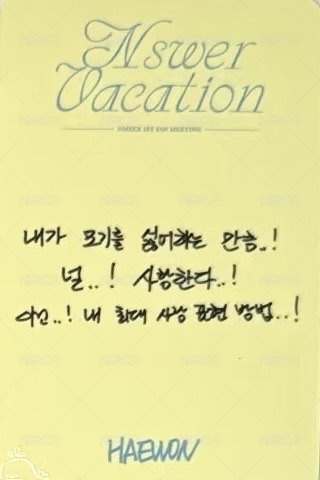 Nswer
Vacation
NMIXX 1ST FAN MEETING
내가 모기를 싫어하는 만큼..!
널..! 사랑한다..!
이건..! 내 최대 사랑 표현 방법..!
HAEWON